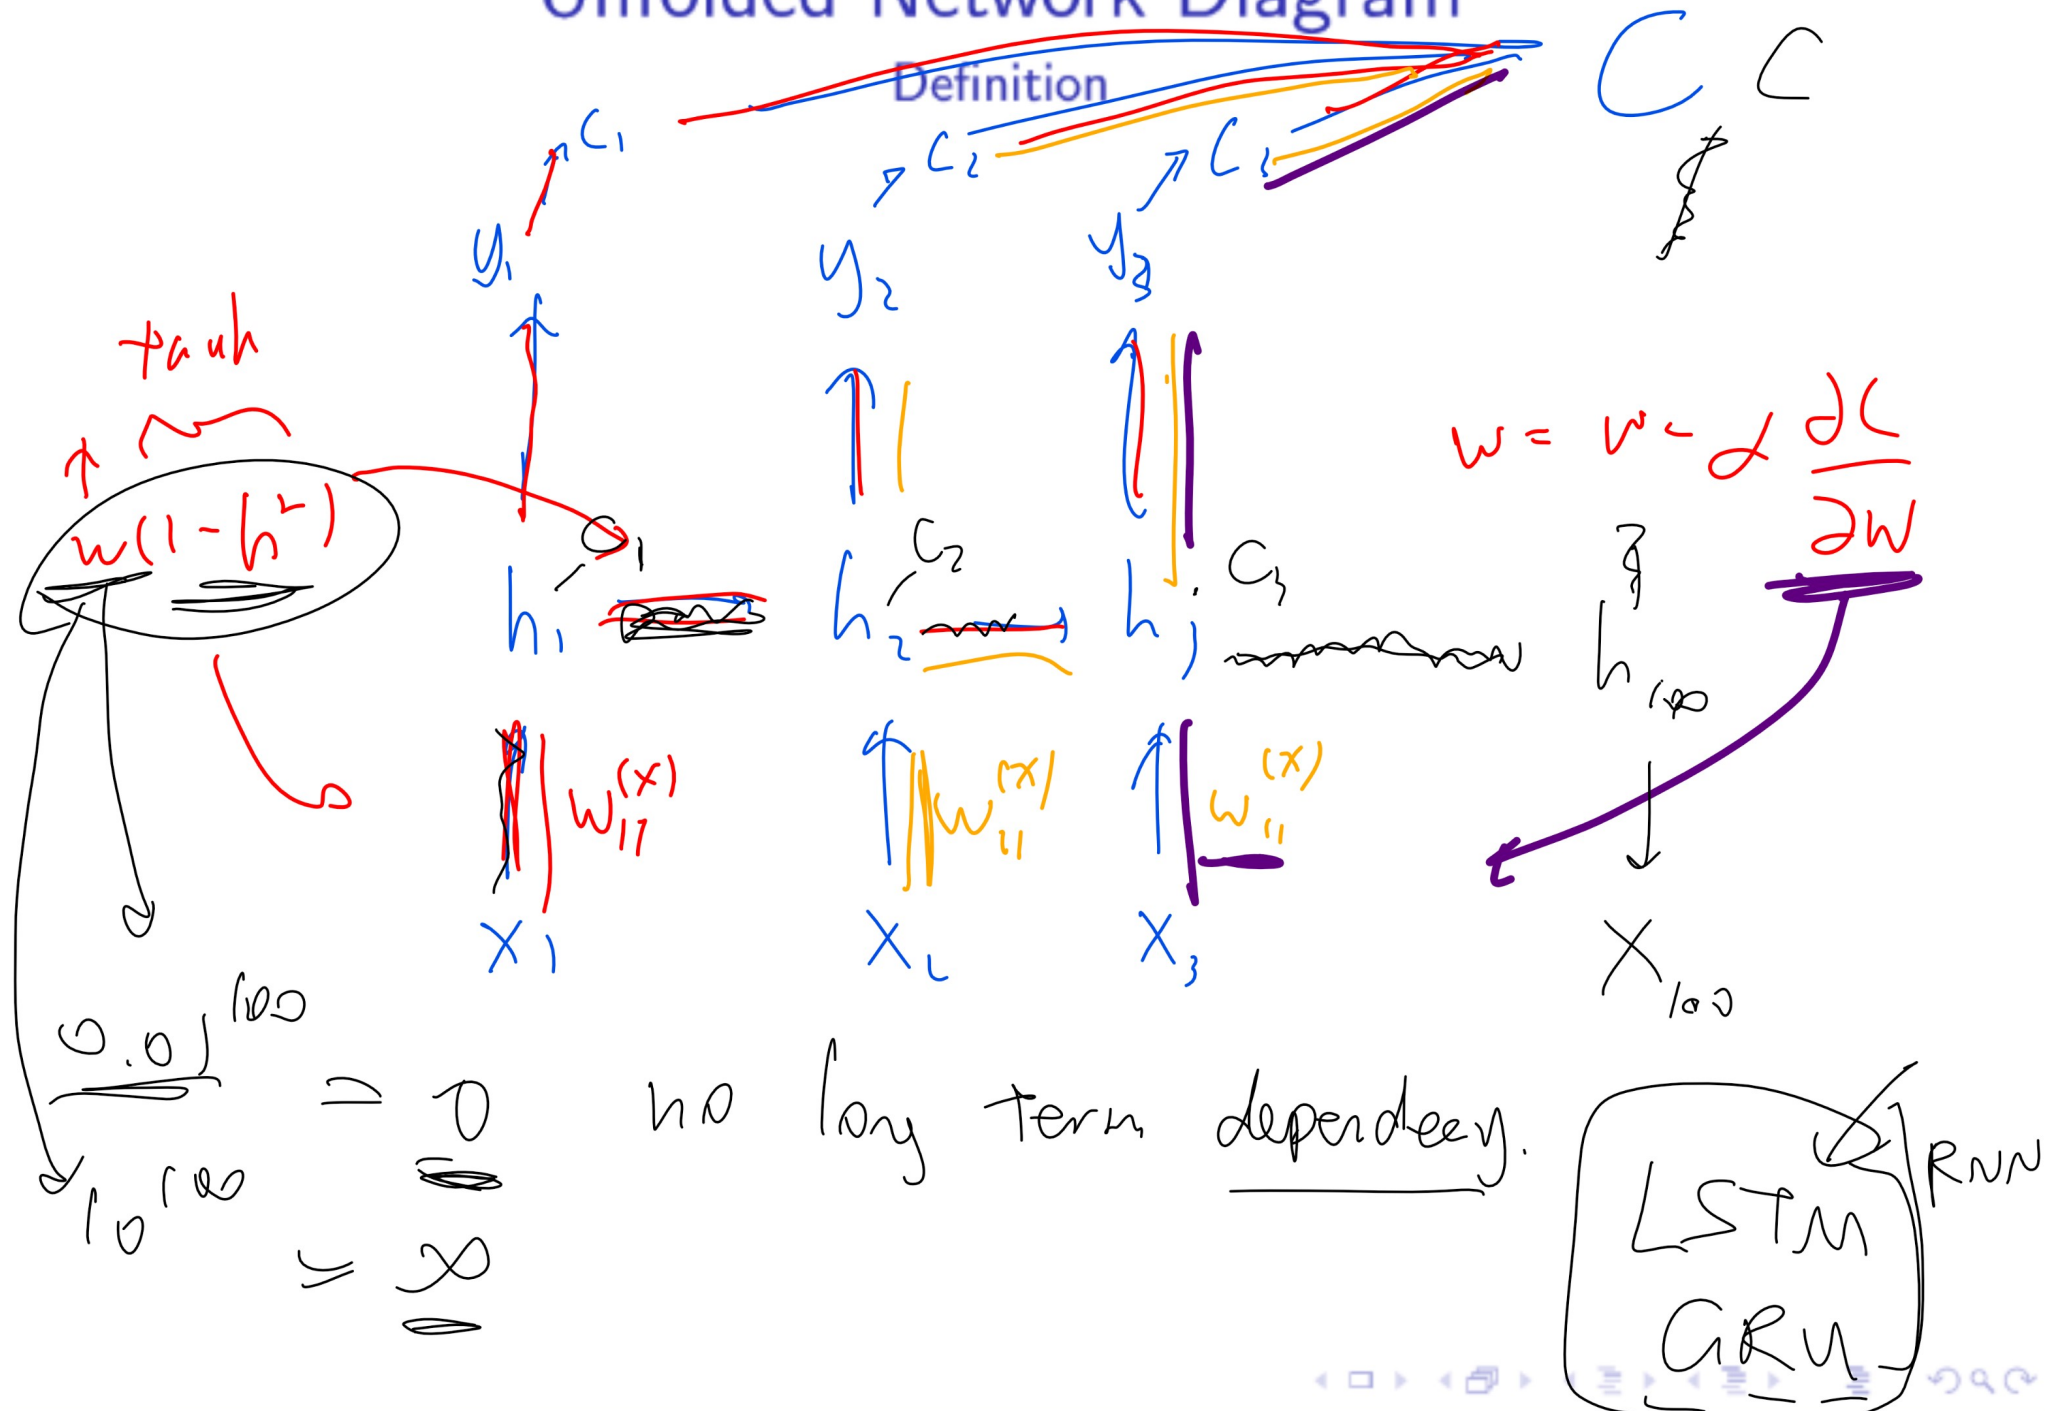 Unfolded Network Diagram
Definition
C C
C1 C2 C3
y1 y2 y3
tanh
w = w - α ∂C
∂w
w(1-h²)
C1 C2 C3
h1 h2 h3 h100
w11(x) w11(x) w11(x)
x1 x2 x3 x100
0.01^100 = 0 no long term dependecy.
10^100 = ∞
RNN
LSTM
GRU